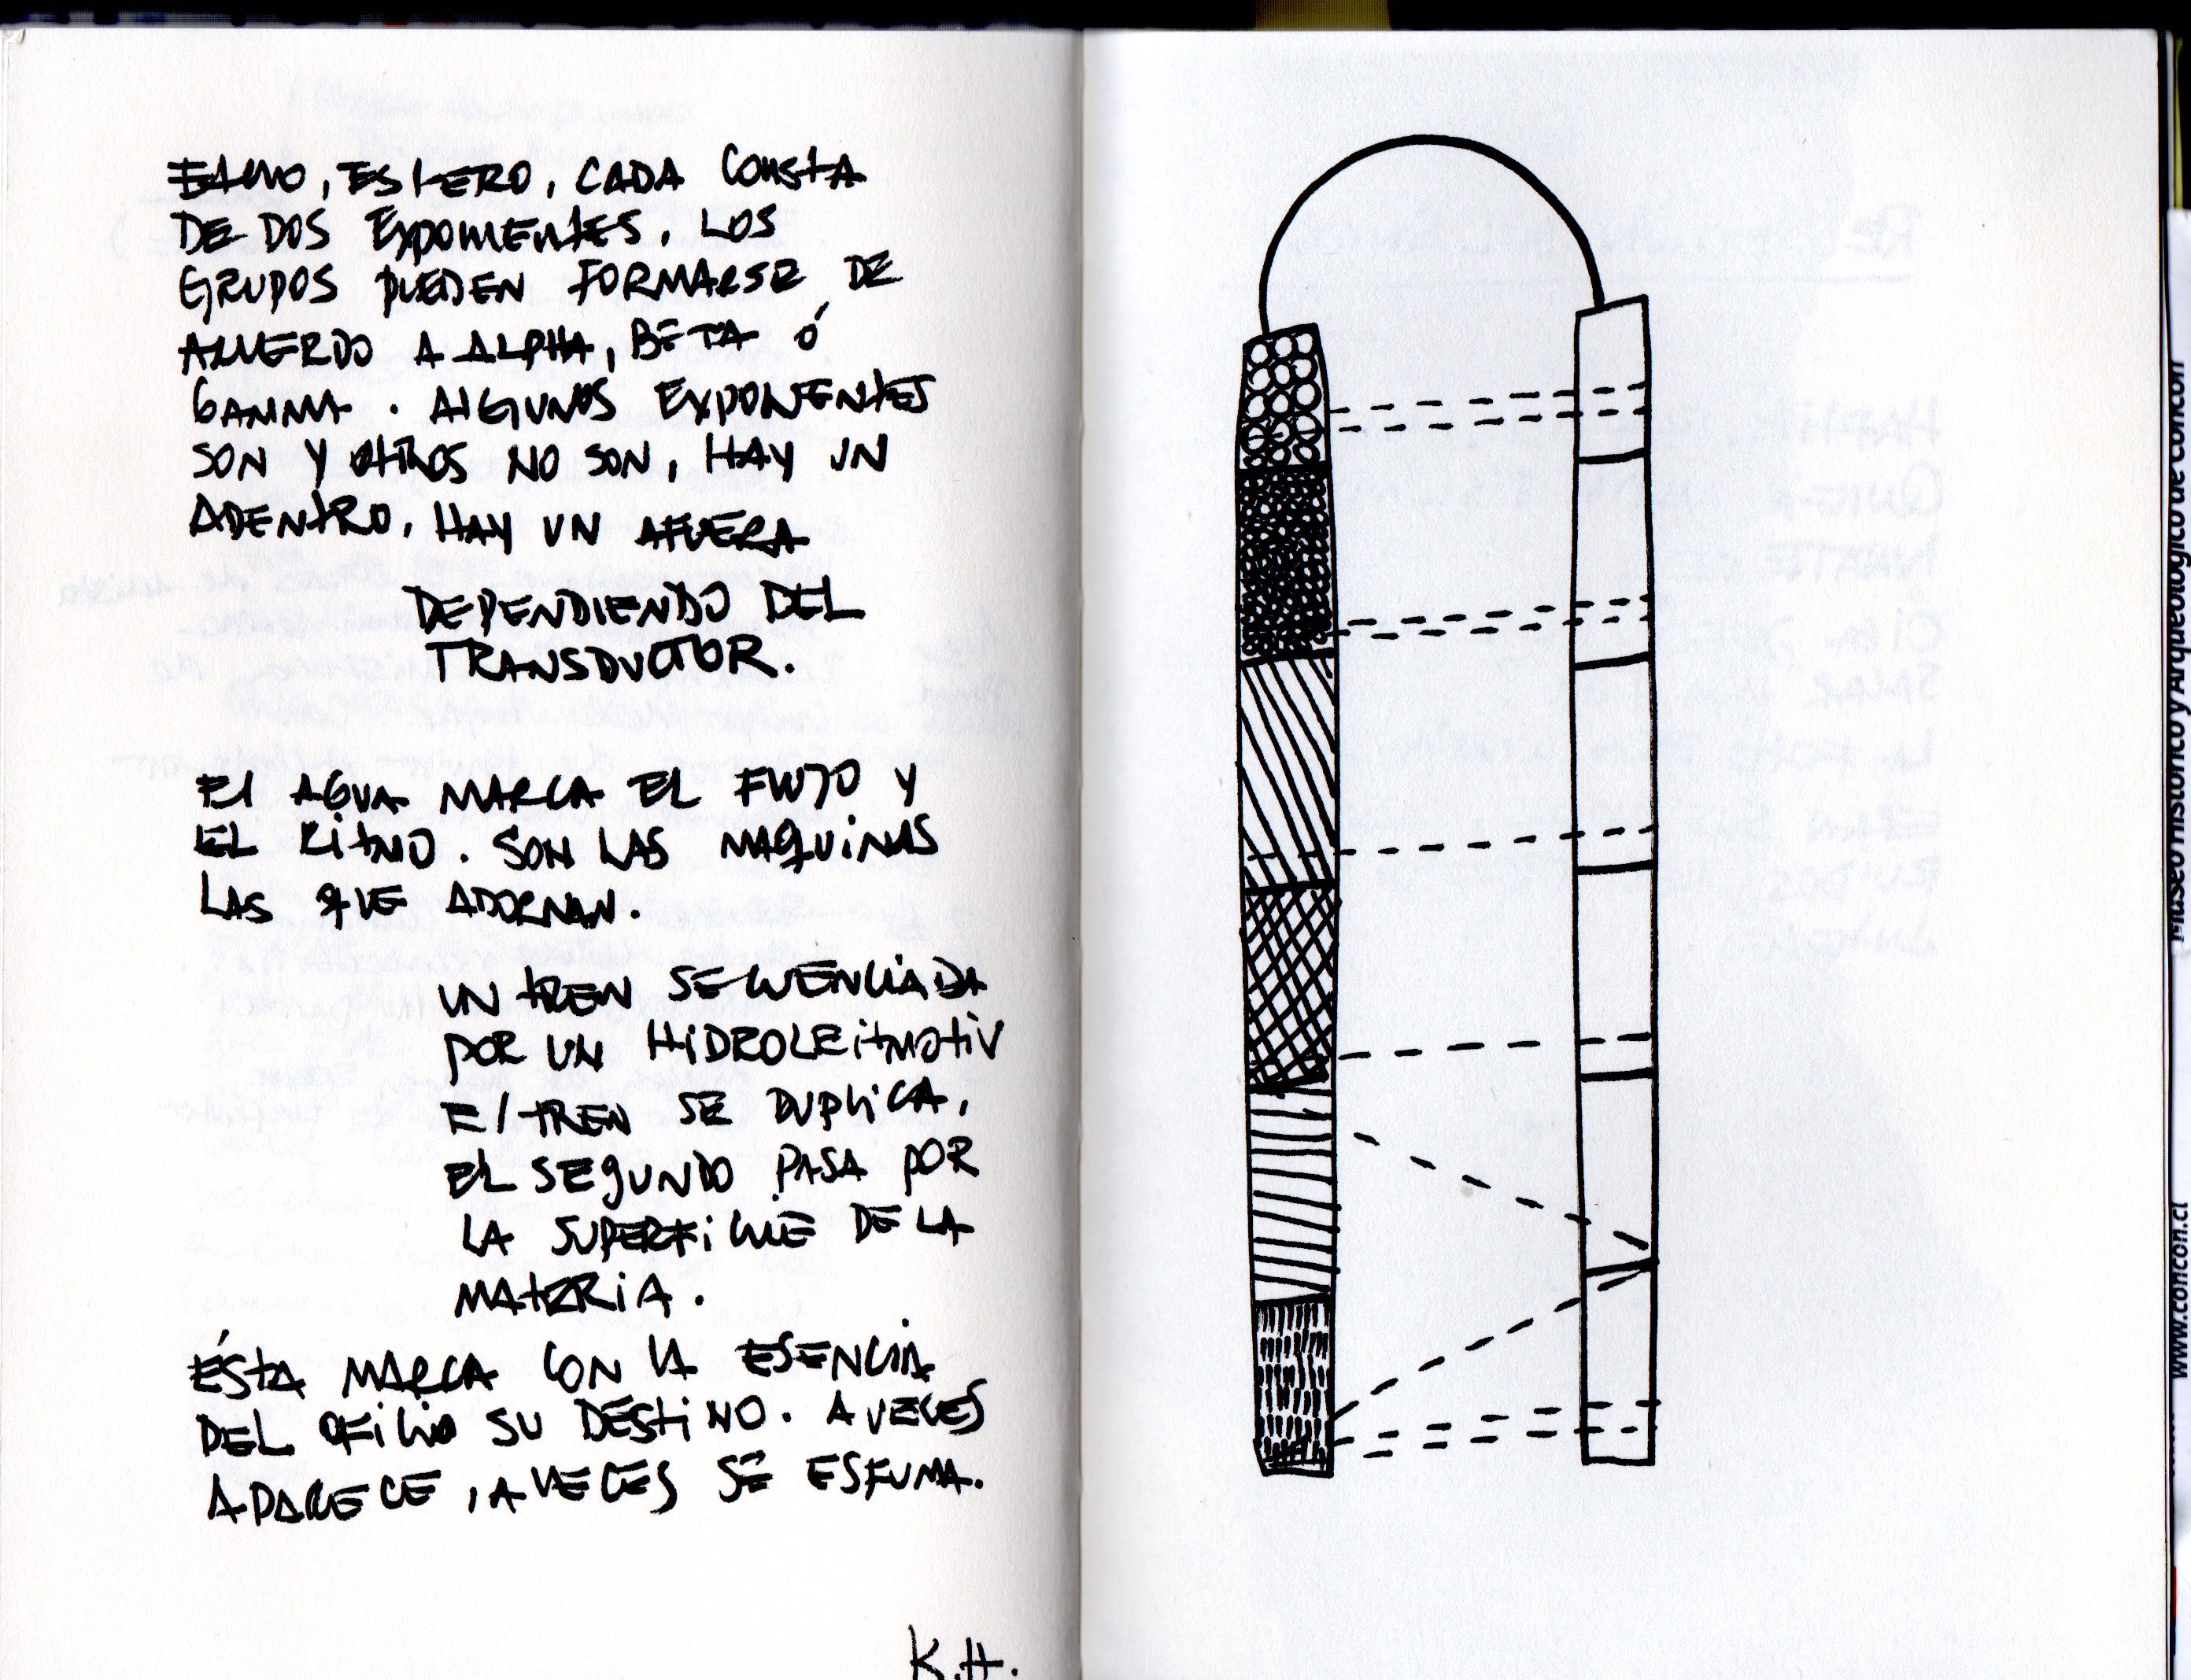 ESTERO, CADA CONSTA
DE DOS EXPONENTES, LOS
GRUPOS PUEDEN FORMARSE DE
ACUERDO A ALPHA, BETA Ó
GAMMA. ALGUNOS EXPONENTES
SON Y OTROS NO SON, HAY UN
ADENTRO, HAY UN AFUERA
DEPENDIENDO DEL
TRANSDUCTOR.
El AGUA MARCA EL FLUJO Y
EL RITMO. SON LAS MAQUINAS
LAS QUE ADORNAN.
UN TREN SECUENCIADA
POR UN HIDROLEITMOTIV
El TREN SE DUPLICA,
EL SEGUNDO PASA POR
LA SUPERFICIE DE LA
MATERIA.
ÉSTA MARCA CON LA ESENCIA
DEL OFICIO SU DESTINO. A VECES
APARECE, A VECES SE ESFUMA.
K.H.
Museo Histórico y Arqueológico de Concón
www.concon.cl